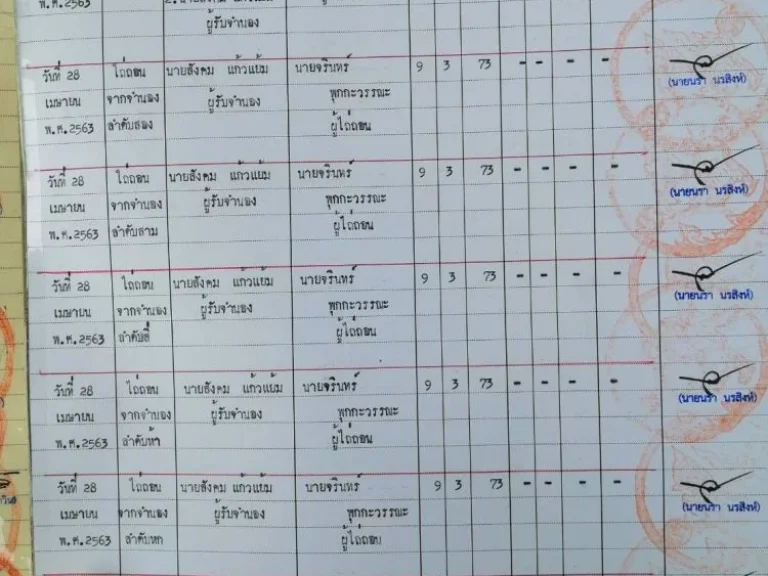 พ.ศ.2563
ผู้รับจำนอง
วันที่ 28 ไถ่ถอน นายสังคม แก้วแย้ม นายจรินทร์ 9 3 73 - - - -
เมษายน จากจำนอง ผู้รับจำนอง พุกกะวรรณะ (นายนรา นรสิงห์)
พ.ศ.2563 ลำดับสอง ผู้ไถ่ถอน
วันที่ 28 ไถ่ถอน นายสังคม แก้วแย้ม นายจรินทร์ 9 3 73 - - - -
เมษายน จากจำนอง ผู้รับจำนอง พุกกะวรรณะ (นายนรา นรสิงห์)
พ.ศ.2563 ลำดับสาม ผู้ไถ่ถอน
วันที่ 28 ไถ่ถอน นายสังคม แก้วแย้ม นายจรินทร์ 9 3 73 - - - -
เมษายน จากจำนอง ผู้รับจำนอง พุกกะวรรณะ (นายนรา นรสิงห์)
พ.ศ.2563 ลำดับสี่ ผู้ไถ่ถอน
วันที่ 28 ไถ่ถอน นายสังคม แก้วแย้ม นายจรินทร์ 9 3 73 - - - -
เมษายน จากจำนอง ผู้รับจำนอง พุกกะวรรณะ (นายนรา นรสิงห์)
พ.ศ.2563 ลำดับห้า ผู้ไถ่ถอน
วันที่ 28 ไถ่ถอน นายสังคม แก้วแย้ม นายจรินทร์ 9 3 73 - - - -
เมษายน จากจำนอง ผู้รับจำนอง พุกกะวรรณะ (นายนรา นรสิงห์)
พ.ศ.2563 ลำดับหก ผู้ไถ่ถอน